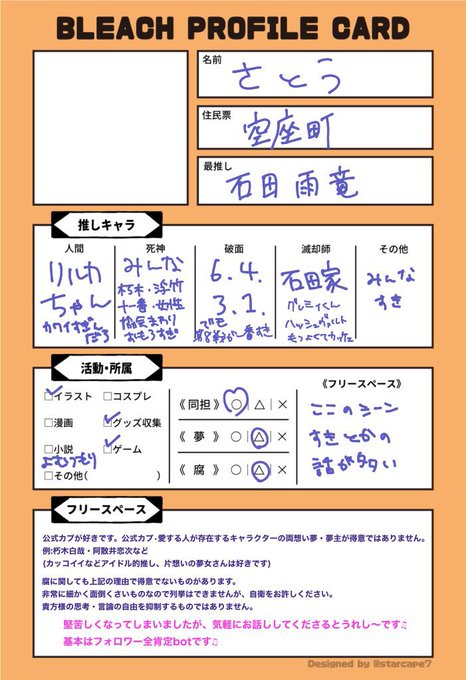 BLEACH PROFILE CARD
名前
さとう
住民票
空座町
最推し
石田雨竜
推しキャラ
人間
リルカ
ちゃん
カワイすぎん
だろ
死神
みんな
朽木・浮竹
十一番・女性
おもろすぎ
破面
6.4.
3.1.
でも
番すき
滅却師
石田家
グレミィくん
ハッシュヴァルト
その他
みんな
すき
活動・所属
□イラスト □コスプレ
□漫画 □グッズ収集
□小説 □ゲーム
よむつもり
□その他( )
《同担》 ○ | △ | ×
《 夢 》 ○ | △ | ×
《 腐 》 ○ | △ | ×
《フリースペース》
ここのシーン
すきとかの
話が多い
フリースペース
公式カプが好きです。公式カプ・愛する人が存在するキャラクターの両想い夢・夢主が得意ではありません。
例:朽木白哉・阿散井恋次など
(カッコイイなどアイドル的推し、片想いの夢女さんは好きです)
腐に関しても上記の理由で得意でないものがあります。
非常に細かく面倒くさいものなので列挙はできませんが、自衛をお許しください。
貴方様の思考・言論の自由を抑制するものではありません。
堅苦しくなってしまいましたが、気軽にお話ししてくださるとうれし〜です♫
基本はフォロワー全肯定botです♫
Designed by @starcape7